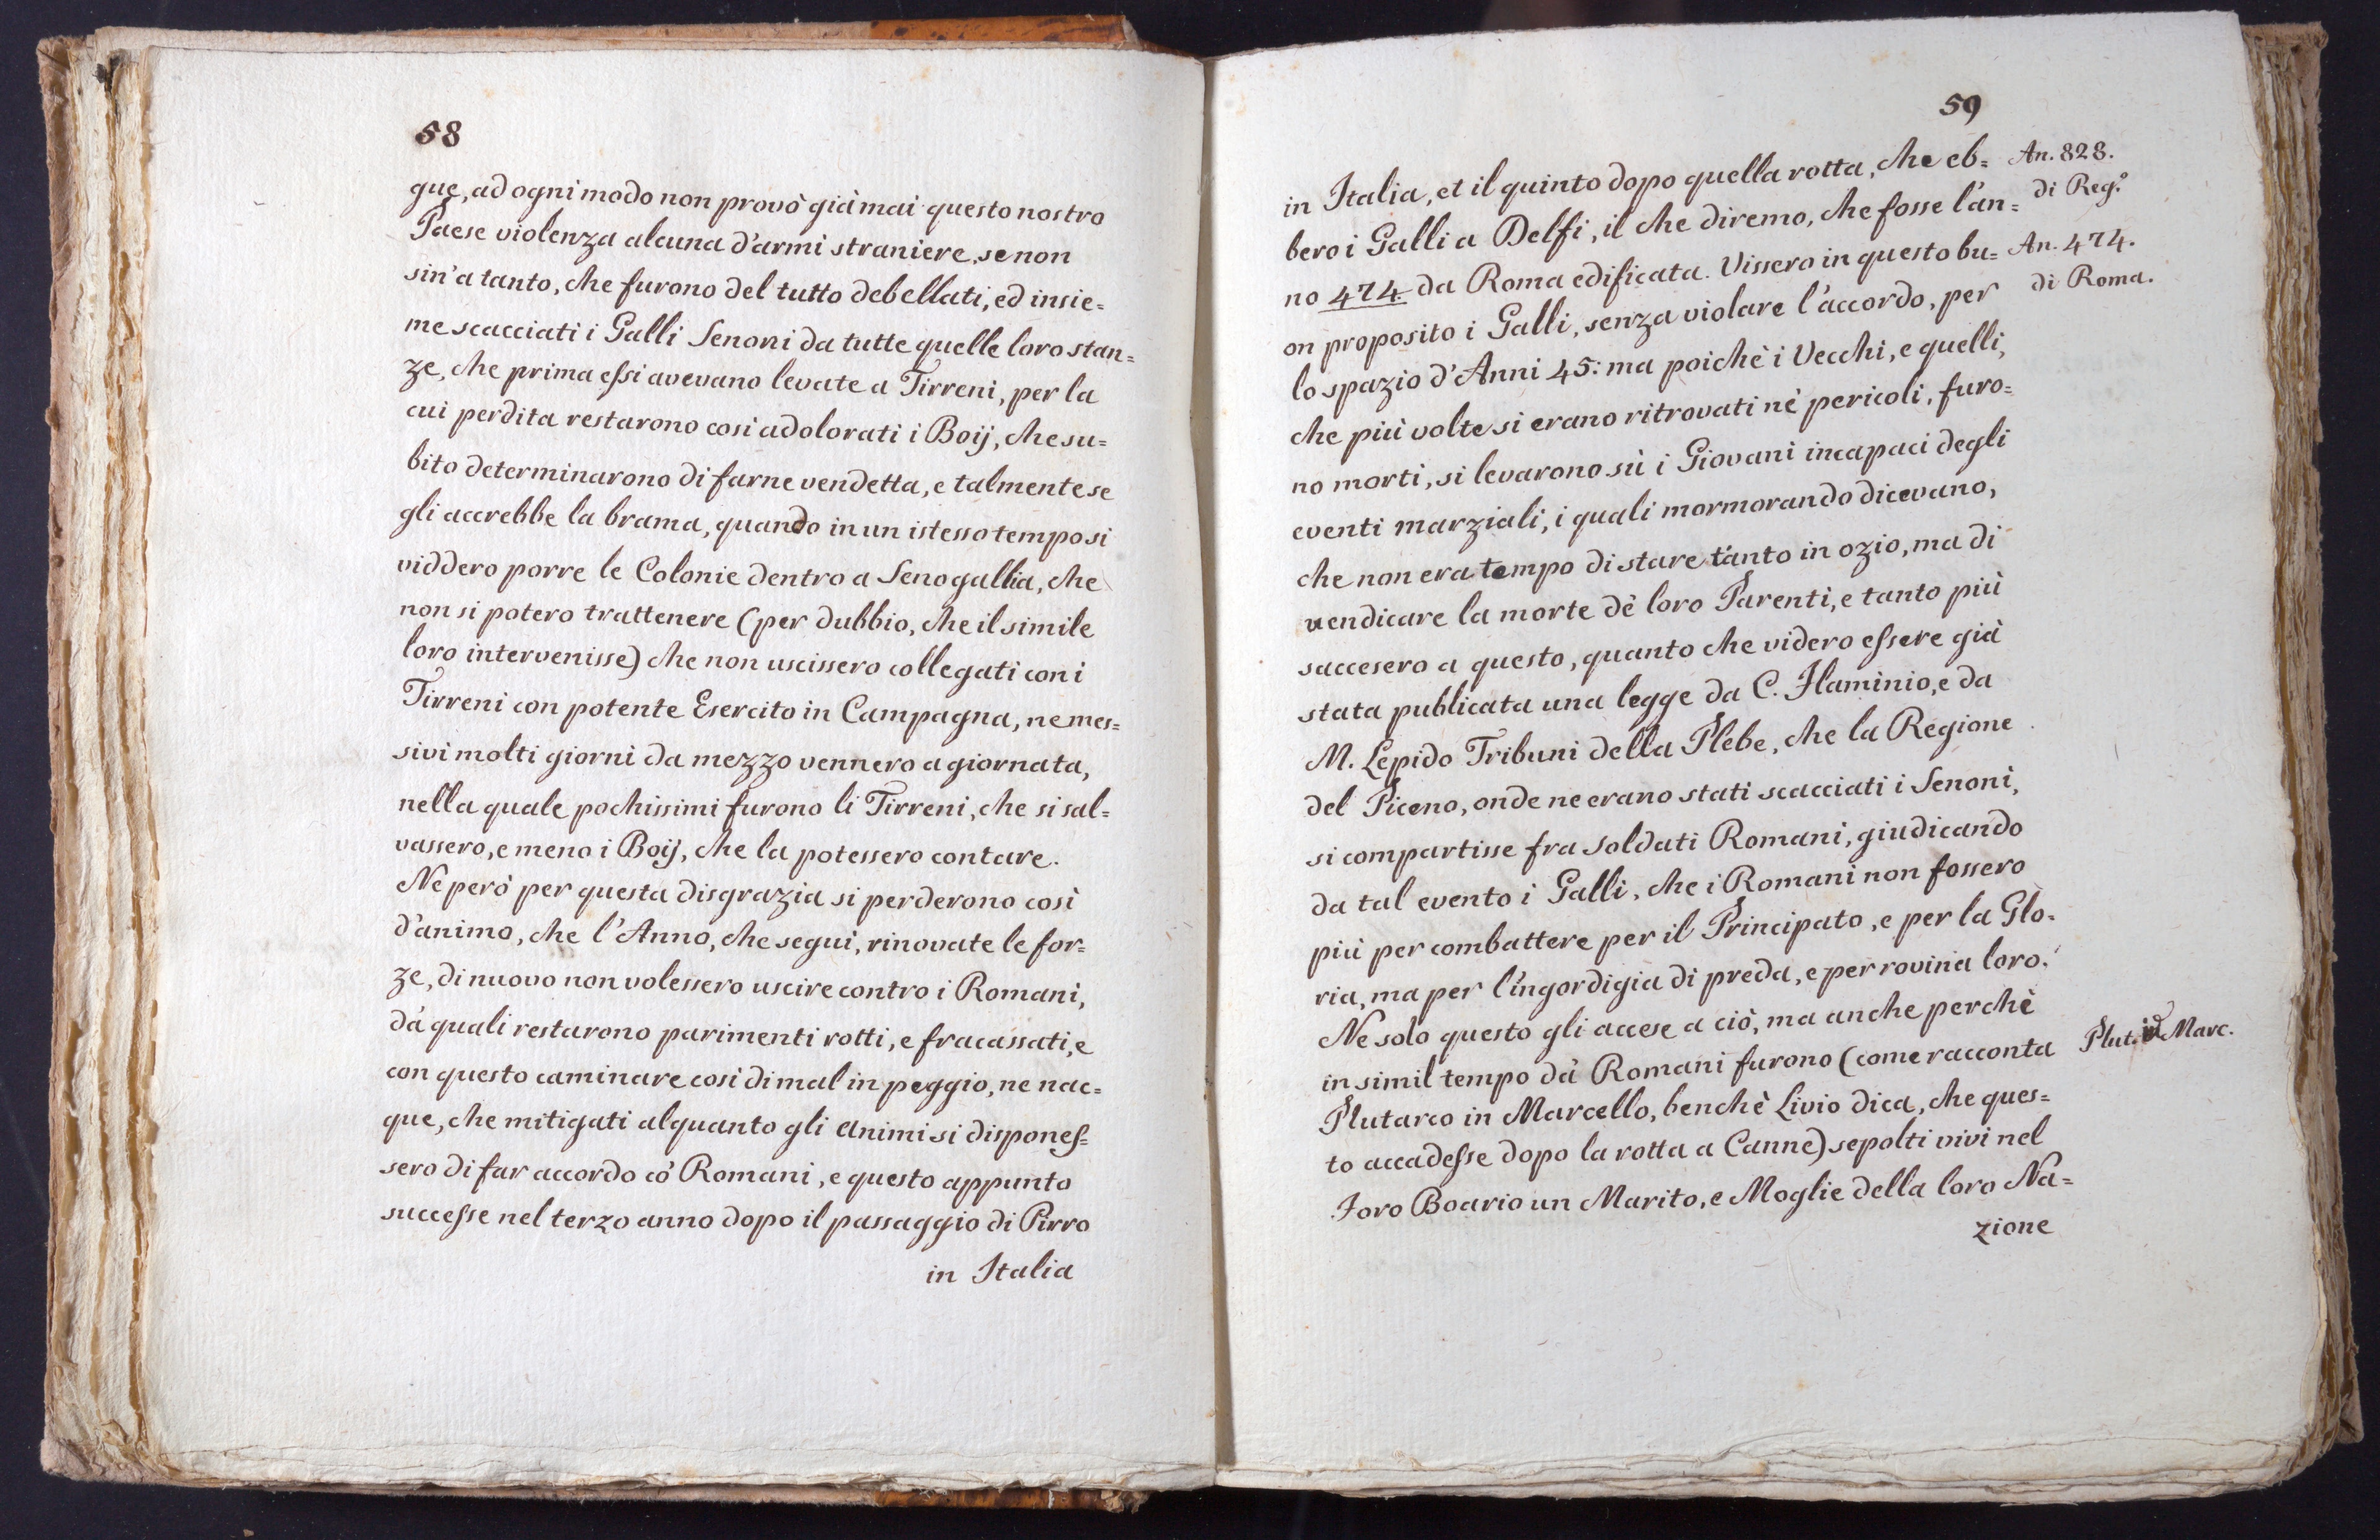 58
gue, ad ogni modo non provò già mai questo nostro
Paese violenza alcuna d'armi straniere, se non
sin'a tanto, che furono del tutto debellati, ed insie=
me scacciati i Galli Senoni da tutte quelle loro stan=
ze, che prima essi avevano levate a Tirreni, per la
cui perdita restarono così adolorati i Boij, che su=
bito determinarono di farne vendetta, e talmente se
gli accrebbe la brama, quando in un istesso tempo si
viddero porre le Colonie dentro a Senogallia, che
non si potero trattenere (per dubbio, che il simile
loro intervenisse) che non uscissero collegati con i
Tirreni con potente Esercito in Campagna, ne mes=
sivi molti giorni da mezzo vennero a giornata,
nella quale pochissimi furono li Tirreni, che si sal=
vassero, e meno i Boij, che la potessero contare.
Ne però per questa disgrazia si perderono così
d'animo, che l'Anno, che seguì, rinovate le for=
ze, di nuovo non volessero uscire contro i Romani,
dà quali restarono parimenti rotti, e fracassati, e
con questo caminare così di mal in peggio, ne nac=
que, che mitigati alquanto gli animi si dispones=
sero di far accordo co' Romani, e questo appunto
successe nel terzo anno dopo il passaggio di Pirro
in Italia
59
in Italia, et il quinto dopo quella rotta, che eb=
bero i Galli a Delfi, il che diremo, che fosse l'an=
no 474 da Roma edificata. Vissero in questo bu=
on proposito i Galli, senza violare l'accordo, per
lo spazio d'Anni 45: ma poichè i Vecchi, e quelli,
che più volte si erano ritrovati nè pericoli, furo=
no morti, si levarono sù i Giovani incapaci degli
eventi marziali, i quali mormorando dicevano,
che non era tempo di stare tanto in ozio, ma di
vendicare la morte dè loro Parenti, e tanto più
saccesero a questo, quanto che videro essere già
stata publicata una legge da C. Flaminio, e da
M. Lepido Tribuni della Plebe, che la Regione
del Piceno, onde ne erano stati scacciati i Senoni,
si compartisse fra Soldati Romani, giudicando
da tal evento i Galli, che i Romani non fossero
più per combattere per il Principato, e per la Glo=
ria, ma per l'ingordigia di preda, e per rovina loro.
Ne solo questo gli accese a ciò, ma anche perchè
in simil tempo dà Romani furono (come racconta
Plutarco in Marcello, benchè Livio dica, che ques=
to accadesse dopo la rotta a Canne) sepolti vivi nel
Foro Boario un Marito, e Moglie della loro Na=
zione
An. 828.
di Reg.º
An. 474.
di Roma.
Plut. in Marc.